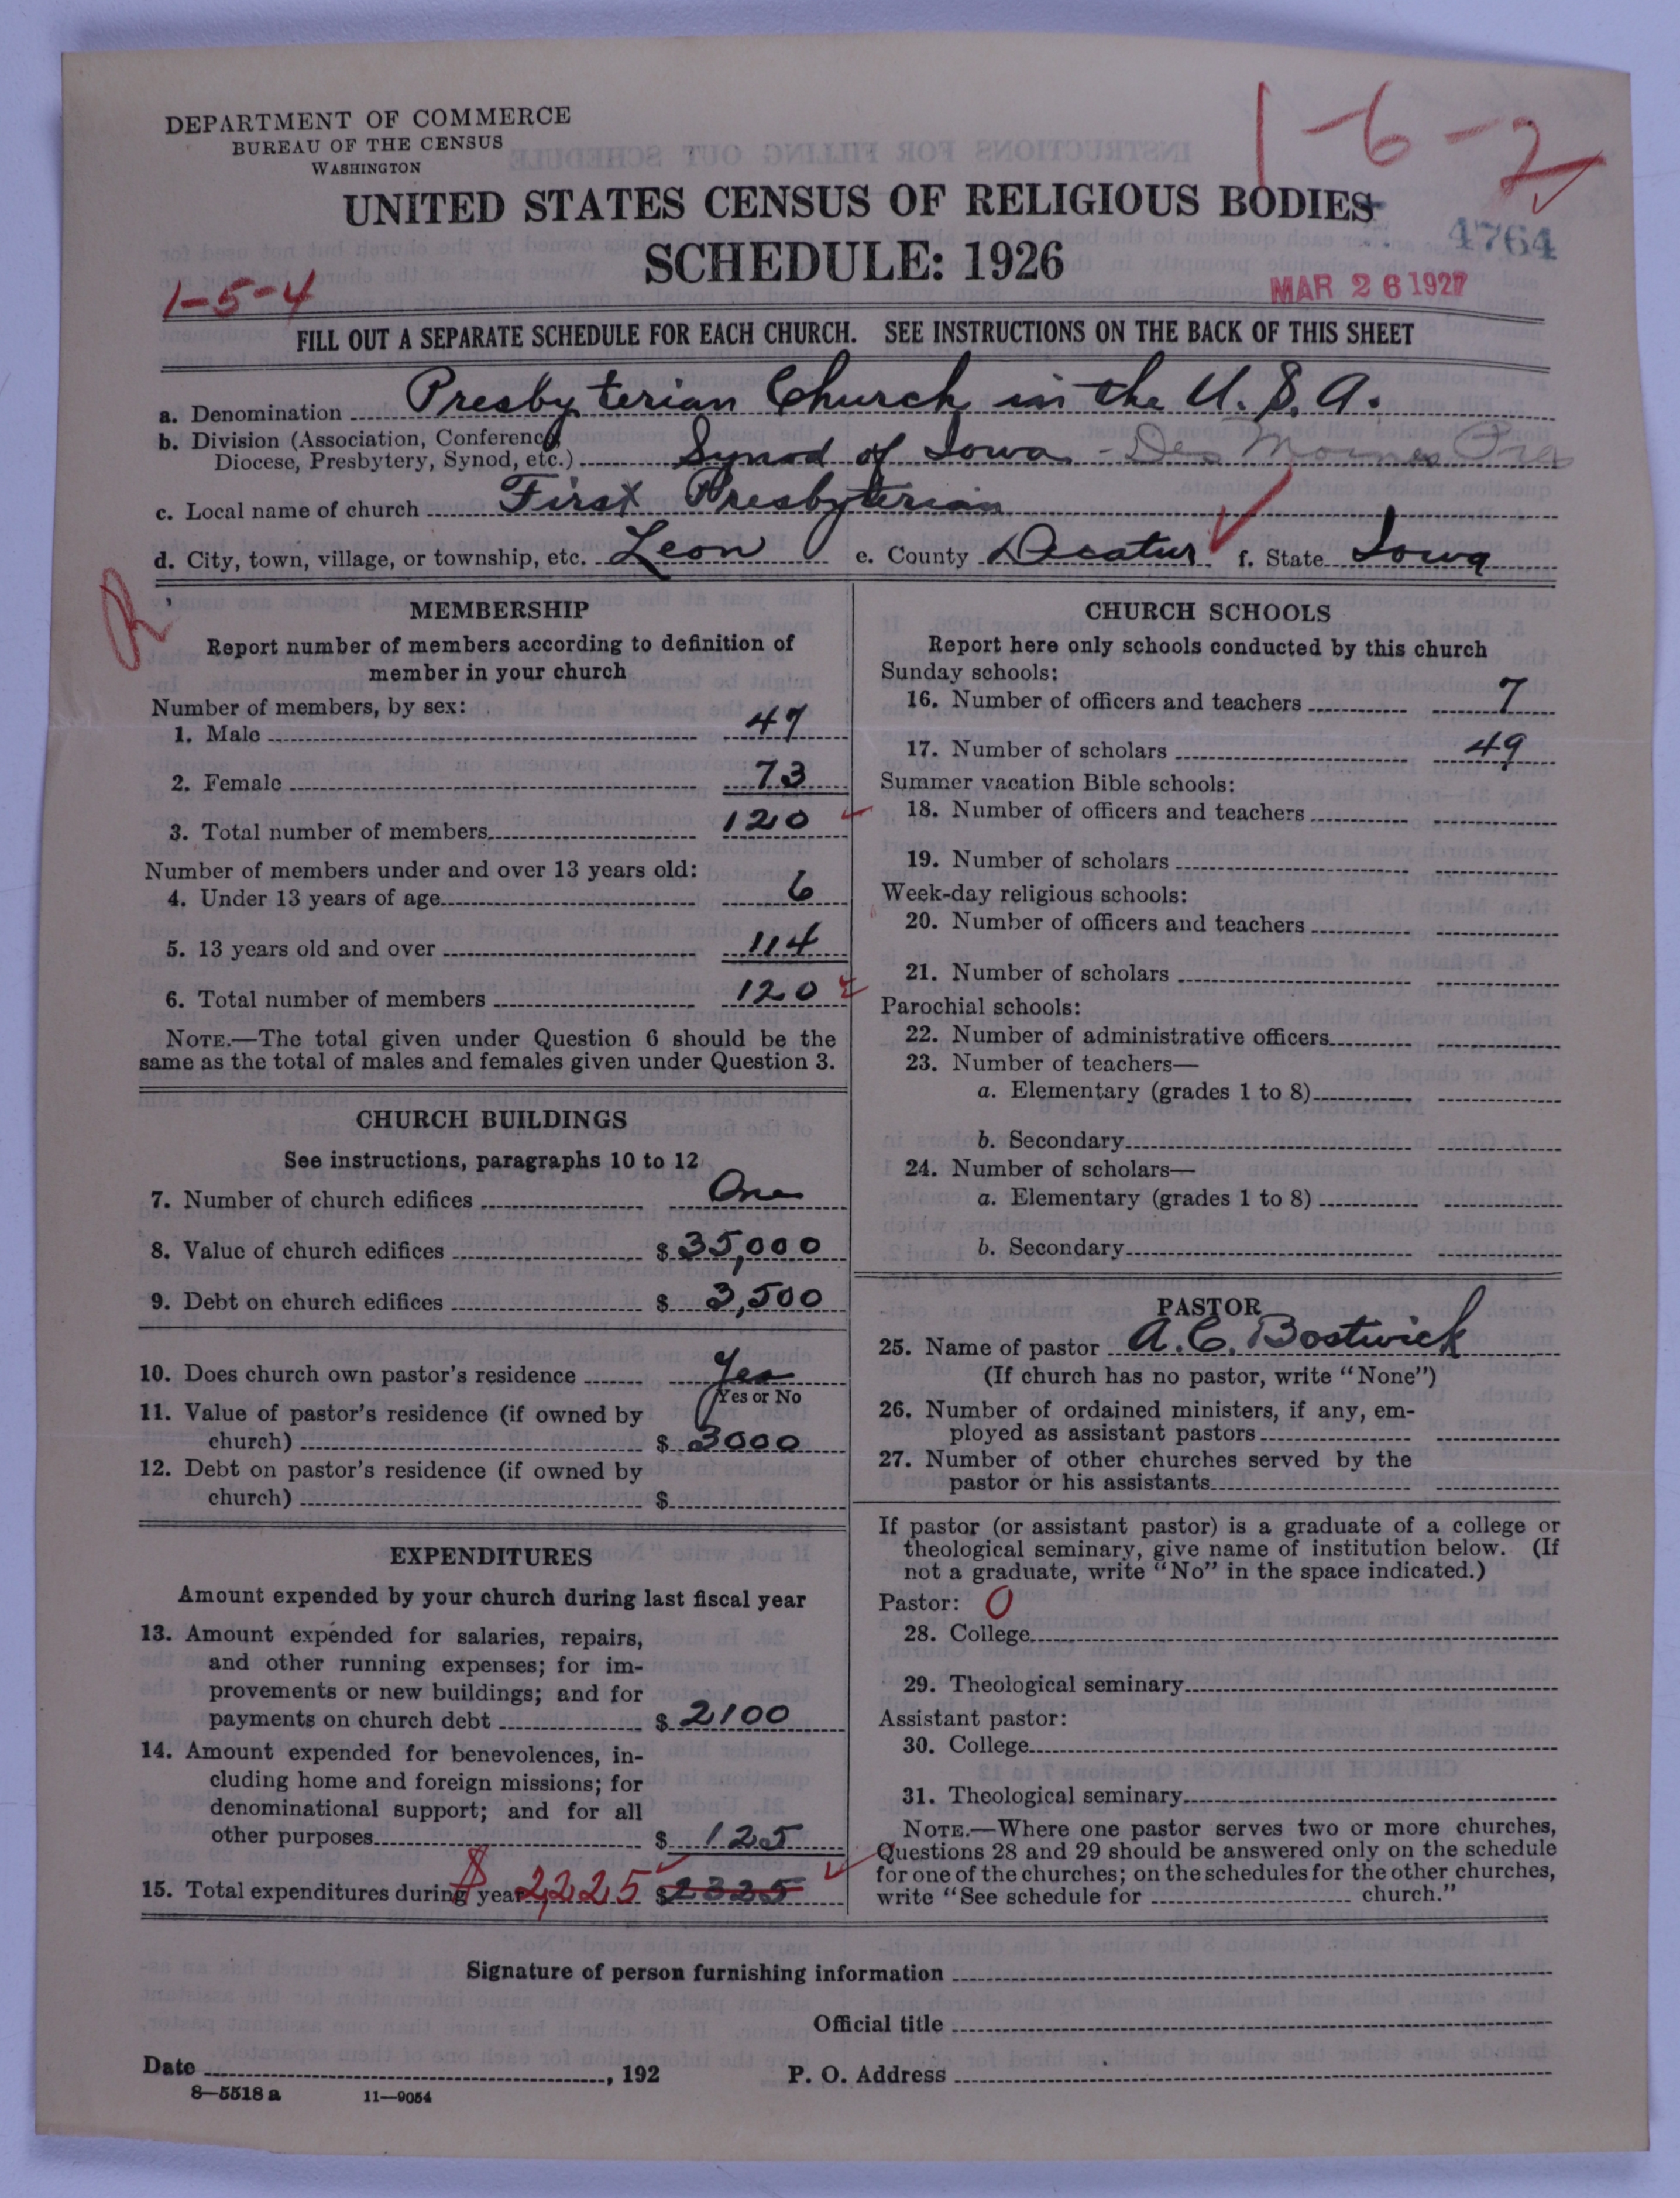 DEPARTMENT OF COMMERCE
BUREAU OF THE CENSUS
WASHINGTON
1-6-2
UNITED STATES CENSUS OF RELIGIOUS BODIES
4764
SCHEDULE: 1926
1-5-4
MAR 26 1927
FILL OUT A SEPARATE SCHEDULE FOR EACH CHURCH. SEE INSTRUCTIONS ON THE BACK OF THIS SHEET
a. Denomination Presbyterian Church in the U.S.A.
b. Division (Association, Conference,
Diocese, Presbytery, Synod, etc.) Synod of Iowa - Des Moines Pres
c. Local name of church First Presbyterian
d. City, town, village, or township, etc. Leon e. County Decatur f. State Iowa
R
MEMBERSHIP
Report number of members according to definition of
member in your church
Number of members, by sex:
1. Male 47
2. Female 73
3. Total number of members 120
Number of members under and over 13 years old:
4. Under 13 years of age 6
5. 13 years old and over 114
6. Total number of members 120
NOTE.—The total given under Question 6 should be the
same as the total of males and females given under Question 3.
CHURCH BUILDINGS
See instructions, paragraphs 10 to 12
7. Number of church edifices One
8. Value of church edifices $ 35,000
9. Debt on church edifices $ 3,500
10. Does church own pastor's residence Yes
(Yes or No
11. Value of pastor's residence (if owned by
church) $ 3000
12. Debt on pastor's residence (if owned by
church) $
EXPENDITURES
Amount expended by your church during last fiscal year
13. Amount expended for salaries, repairs,
and other running expenses; for im-
provements or new buildings; and for
payments on church debt $ 2100
14. Amount expended for benevolences, in-
cluding home and foreign missions; for
denominational support; and for all
other purposes $ 125
15. Total expenditures during year $2,225 $2325
CHURCH SCHOOLS
Report here only schools conducted by this church
Sunday schools:
16. Number of officers and teachers 7
17. Number of scholars 49
Summer vacation Bible schools:
18. Number of officers and teachers
19. Number of scholars
Week-day religious schools:
20. Number of officers and teachers
21. Number of scholars
Parochial schools:
22. Number of administrative officers
23. Number of teachers—
a. Elementary (grades 1 to 8)
b. Secondary
24. Number of scholars—
a. Elementary (grades 1 to 8)
b. Secondary
PASTOR
25. Name of pastor A. C. Bostwick
(If church has no pastor, write "None")
26. Number of ordained ministers, if any, em-
ployed as assistant pastors
27. Number of other churches served by the
pastor or his assistants
If pastor (or assistant pastor) is a graduate of a college or
theological seminary, give name of institution below. (If
not a graduate, write "No" in the space indicated.)
Pastor: O
28. College
29. Theological seminary
Assistant pastor:
30. College
31. Theological seminary
NOTE.—Where one pastor serves two or more churches,
Questions 28 and 29 should be answered only on the schedule
for one of the churches; on the schedules for the other churches,
write "See schedule for church."
Signature of person furnishing information
Official title
Date , 192 P. O. Address
8—5518 a 11—9054